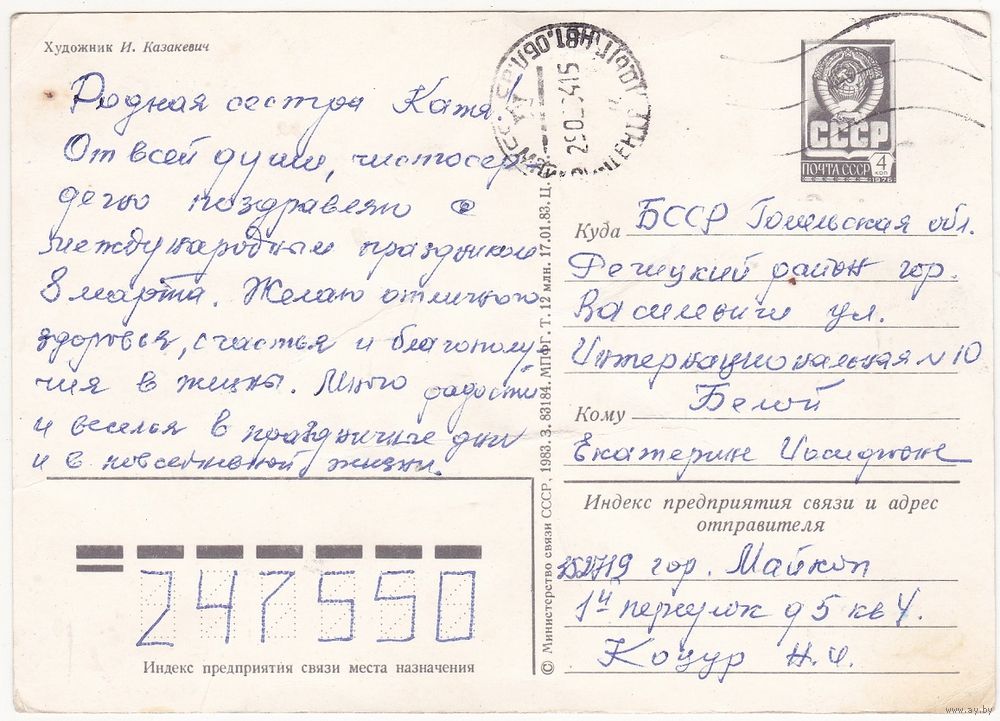 Художник И. Казакевич
Родная сестра Катя!
От всей души, чистосер-
дечно поздравляю с
международным праздником
8 марта. Желаю отличного
здоровья, счастья и благополу-
чия в жизни. Много радости
и веселья в праздничные дни
и в повседневной жизни.
СССР
ПОЧТА СССР
4 коп
1976
Куда БССР Гомельская обл.
Речицкий район гор.
Василевичи ул.
Интернациональная № 10
Кому Белой
Екатерине
Индекс предприятия связи и адрес
отправителя
гор. Майкоп
1й переулок д 5 кв 4.
Коцур Н.И.
247550
Индекс предприятия связи места назначения
© Министерство связи СССР, 1983. З. 83184. МПФГ. Т. 12 млн. 17.01.83. Ц.
www.ay.by